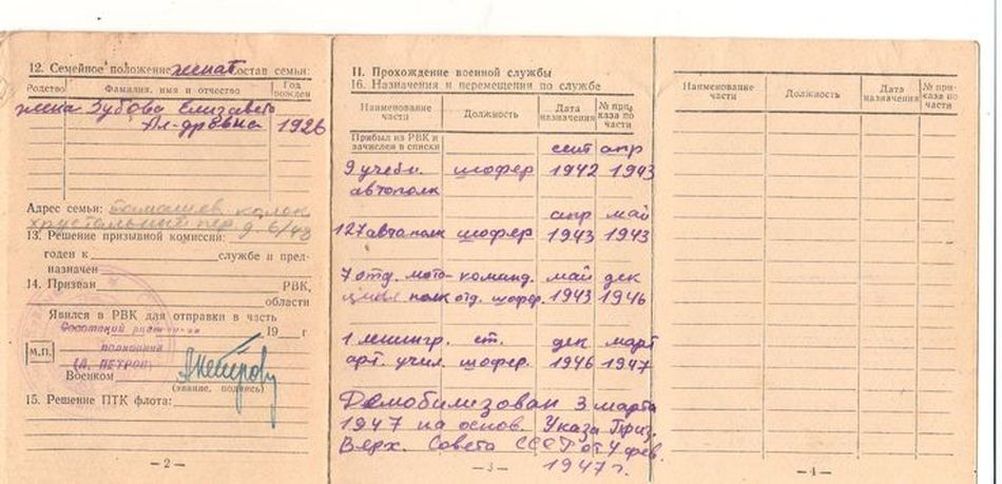 12. Семейное положение женат Состав семьи:
Родство Фамилия, имя и отчество Год рожден
жена Зубова Елизавета
Ал-дровна 1926
Адрес семьи:
хрустальный пер д. 6/43
13. Решение призывной комиссии:
годен к службе и пред-
назначен
14. Призван РВК,
области
Явился в РВК для отправки в часть
19 г
М.П.
полковник
(А. ПЕТРОВ)
Военком АПетров
(звание, подпись)
15. Решение ПТК флота:
— 2 —
II. Прохождение военной службы
16. Назначения и перемещения по службе
Наименование части Должность Дата назначения № при-каза по части
Прибыл из РВК и
зачислен в списки
сент апр
9 учебн. шофер 1942 1943
автополк
апр май
127 автополк шофер 1943 1943
7 отд. мото- команд. май дек
полк отд. шофер. 1943 1946
1 ленингр. ст. дек март
арт. учил. шофер. 1946 1947
Демобилизован 3 марта
1947 на основ. Указа През.
Верх. Совета СССР от 4 фев.
1947 г.
— 3 —
Наименование части Должность Дата назначения № при-каза по части
— 4 —